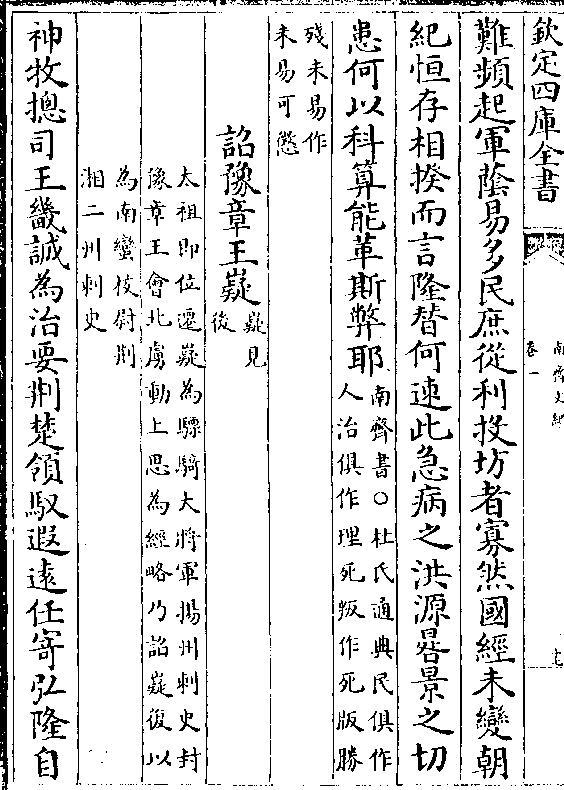 欽定四庫全書
南齊文紀
卷一
難頻起軍蔭易多民庶從利投坊者寡然國經未變朝
紀恒存相揆而言隆替何速此急病之洪源晷景之切
患何以科算能革斯弊耶
南齊書○杜氏通典民俱作
人治俱作理死叛作死版勝
殘未易作
未易可懲
詔豫章王嶷
嶷見
後
太祖即位遷嶷為驃騎大將軍揚州刺史封
豫章王會北虜動上思為經略乃詔嶷復以
為南蠻校尉荆
湘二州刺史
神牧摠司王畿誠為治要荆楚領馭遐遠任寄弘隆自